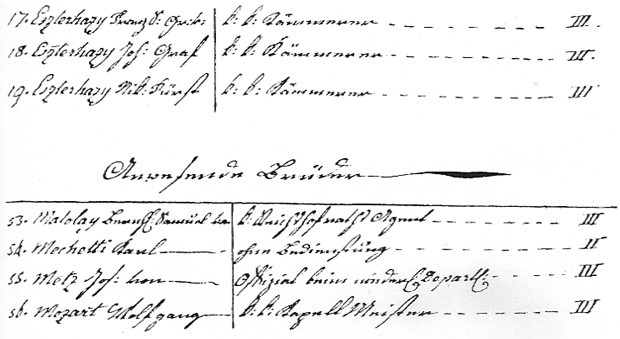 17. Eszterhazy Franz S: Gr: k: k: Kämmerer III.
18. Eszterhazy Joh: Graf k: k: Kämmerer III.
19. Eszterhazy Nik: Fürst k: k: Kämmerer III
Anwesende Brüder
53. Matolay Bernh: Samuel von k: Reichshofraths Agent III
54. Mechotti Karl ohne Bedienstung II
55. Metz Joh: von Offizial beim niederl: Depart: III
56. Mozart Wolfgang k: k: Kapell Meister III